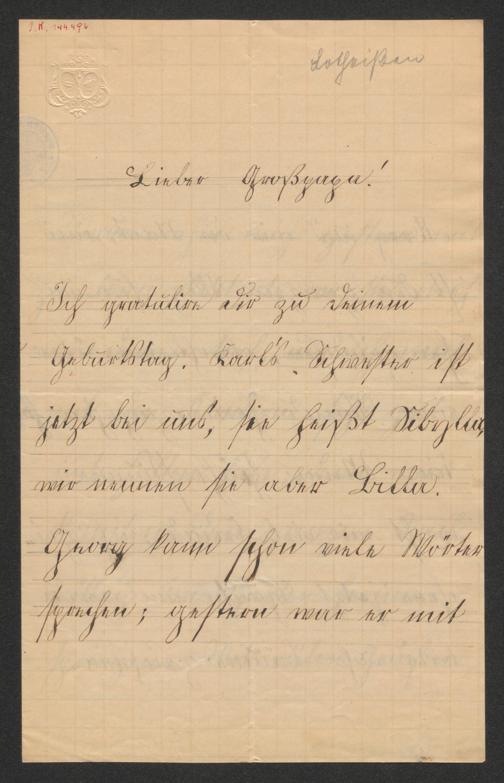 I.N. 144.496
Lotheißen
Lieber Großpapa!
Ich gratulire Dir zu Deinem
Geburtstag. Karl's Schwester ist
jetzt bei uns, sie heißt Sibylla,
wir nennen sie aber Billa.
Georg kann schon viele Wörter
sprechen; gestern war er mit